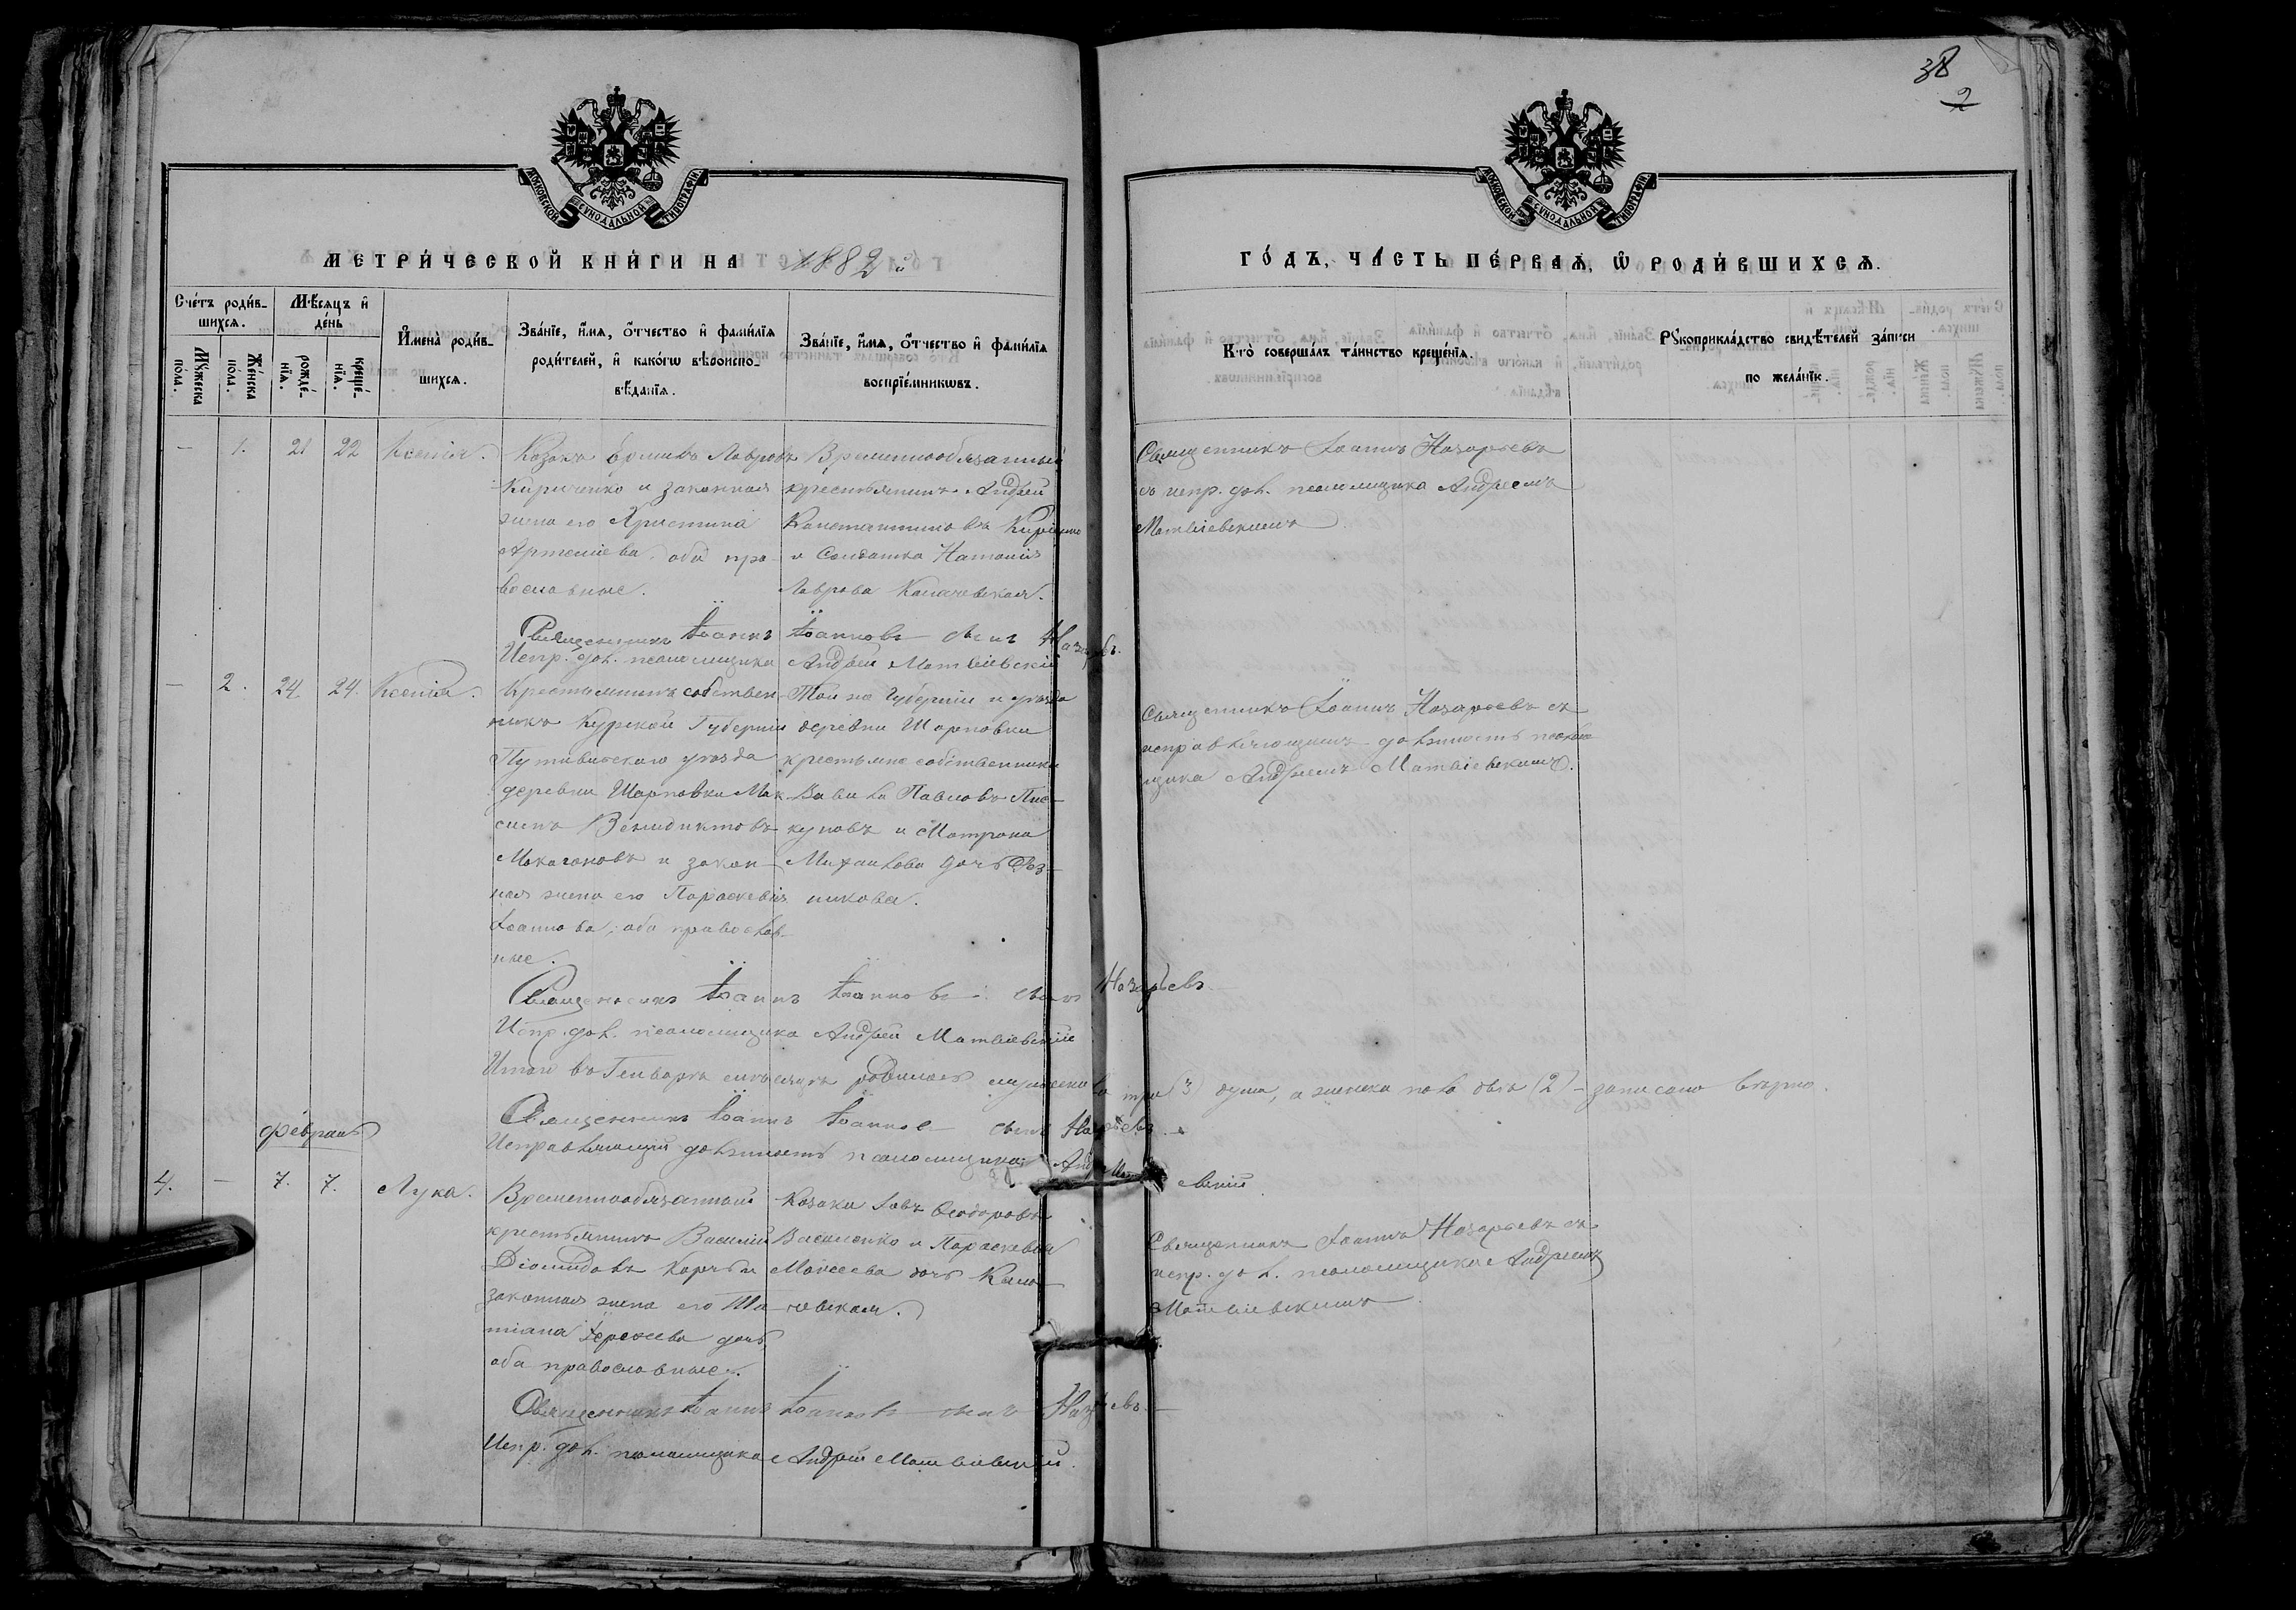 38
2
МОСКОВСКОЙ СУНОДАЛЬНОЙ ТИПОГРАФІИ
МОСКОВСКОЙ СУНОДАЛЬНОЙ ТИПОГРАФІИ
МЕТРИ́ЧЕСКОЙ КНИ́ГИ НА 1882й
ГО́ДЪ, ЧА́СТЬ ПЕ́РВАѦ, Ѡ РОДИ́ВШИХСѦ.
Сче́тъ роди́в-
шихсѧ.
Мꙋ́жеска
по́ла.
Же́нска
по́ла.
Мѣ́сѧцъ и҆
де́нь
рожде́-
нїѧ.
креще́-
нїѧ.
И҆мена̀ роди́в-
шихсѧ.
Зва́нїе, и҆́мѧ, ѻ҆́тчество и҆ фами́лїѧ
роди́телей, и҆ како́гѡ вѣ́роиспо-
вѣ́данїѧ.
Зва́нїе, и҆́мѧ, ѻ҆́тчество и҆ фами́лїѧ
воспрїе́мникѡвъ.
Кто̀ соверша́лъ та́инство креще́нїѧ.
Рꙋкоприкла́дство свидѣ́телей за́писи
по жела́нїю.
— 1. 21 22 Ксенія.
Козакъ Ѳоминъ Лавровъ
Кириченко и законная
жена его Христина
Артеміева, оба пра-
вославные.
Временнообязанный
крестьянинъ Андрей
Константиновъ
и Солдатка Наталія
Лаврова
Священникъ Іоаннъ Назарьевъ
съ испр. дол. псаломщика Андреемъ
Матвіевскимъ
Священникъ Іоаннъ Іоанновъ сынъ Назарьевъ.
Испр. дол. псаломщика Андрей Матвіевскій
— 2. 24. 24. Ксенія.
Крестьянинъ собствен-
никъ Курской Губерніи
Путивльскаго уезда
деревни Шарповки Мак-
симъ Венидиктовъ
Макагоновъ и закон-
ная жена его Параскевія
Іоаннова, оба православ-
ные.
Той же Губерніи и уезда
деревни Шарповки
крестьяне собственники
Вавила Павловъ Пис-
куновъ и Матрона
Михаилова дочь
никова.
Священникъ Іоаннъ Назарьевъ съ
исправляющимъ должность псалом-
щика Андреемъ Матвіевскимъ.
Священникъ Іоаннъ Іоанновъ сынъ Назарьевъ.
Испр. дол. псаломщика Андрей Матвіевскій
Итого въ Генваре месяце родилось мужеска три (3) души, а женска пола два (2) – записано верно.
Священникъ Іоаннъ Іоанновъ сынъ Назарьевъ.
Исправляющій должность псаломщика Андрей Матвіевскій.
Февраль
4. — 7. 7. Лука.
Временнообязанный
крестьянинъ Василій
Діомидовъ и
законная жена его Та-
тіана дочь,
оба православные.
Козакъ Іовъ Ѳеодоровъ
Василенко и Параскевія
Моисеева дочь
Священникъ Іоаннъ Назарьевъ съ
испр. дол. псаломщика Андреемъ
Матвіевскимъ
Священникъ Іоаннъ Іоанновъ сынъ Назарьевъ.
Испр. дол. псаломщика Андрей Матвіевскій.